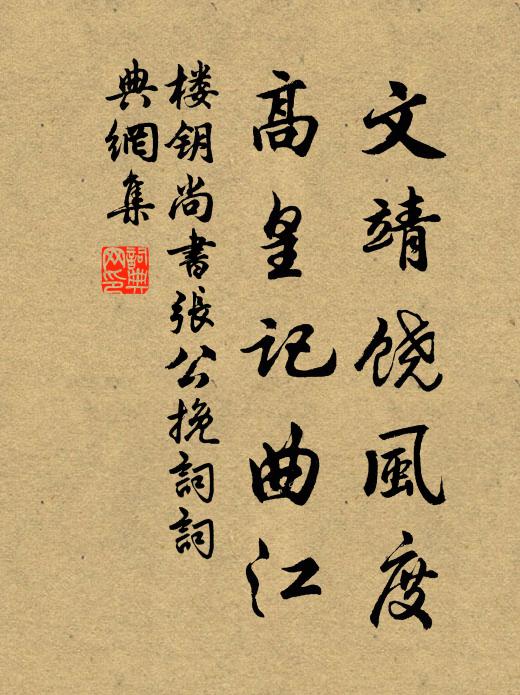 文靖饶風度
高皇记曲江
楼钥尚書張公挽詞詞
典網集
詞典網印